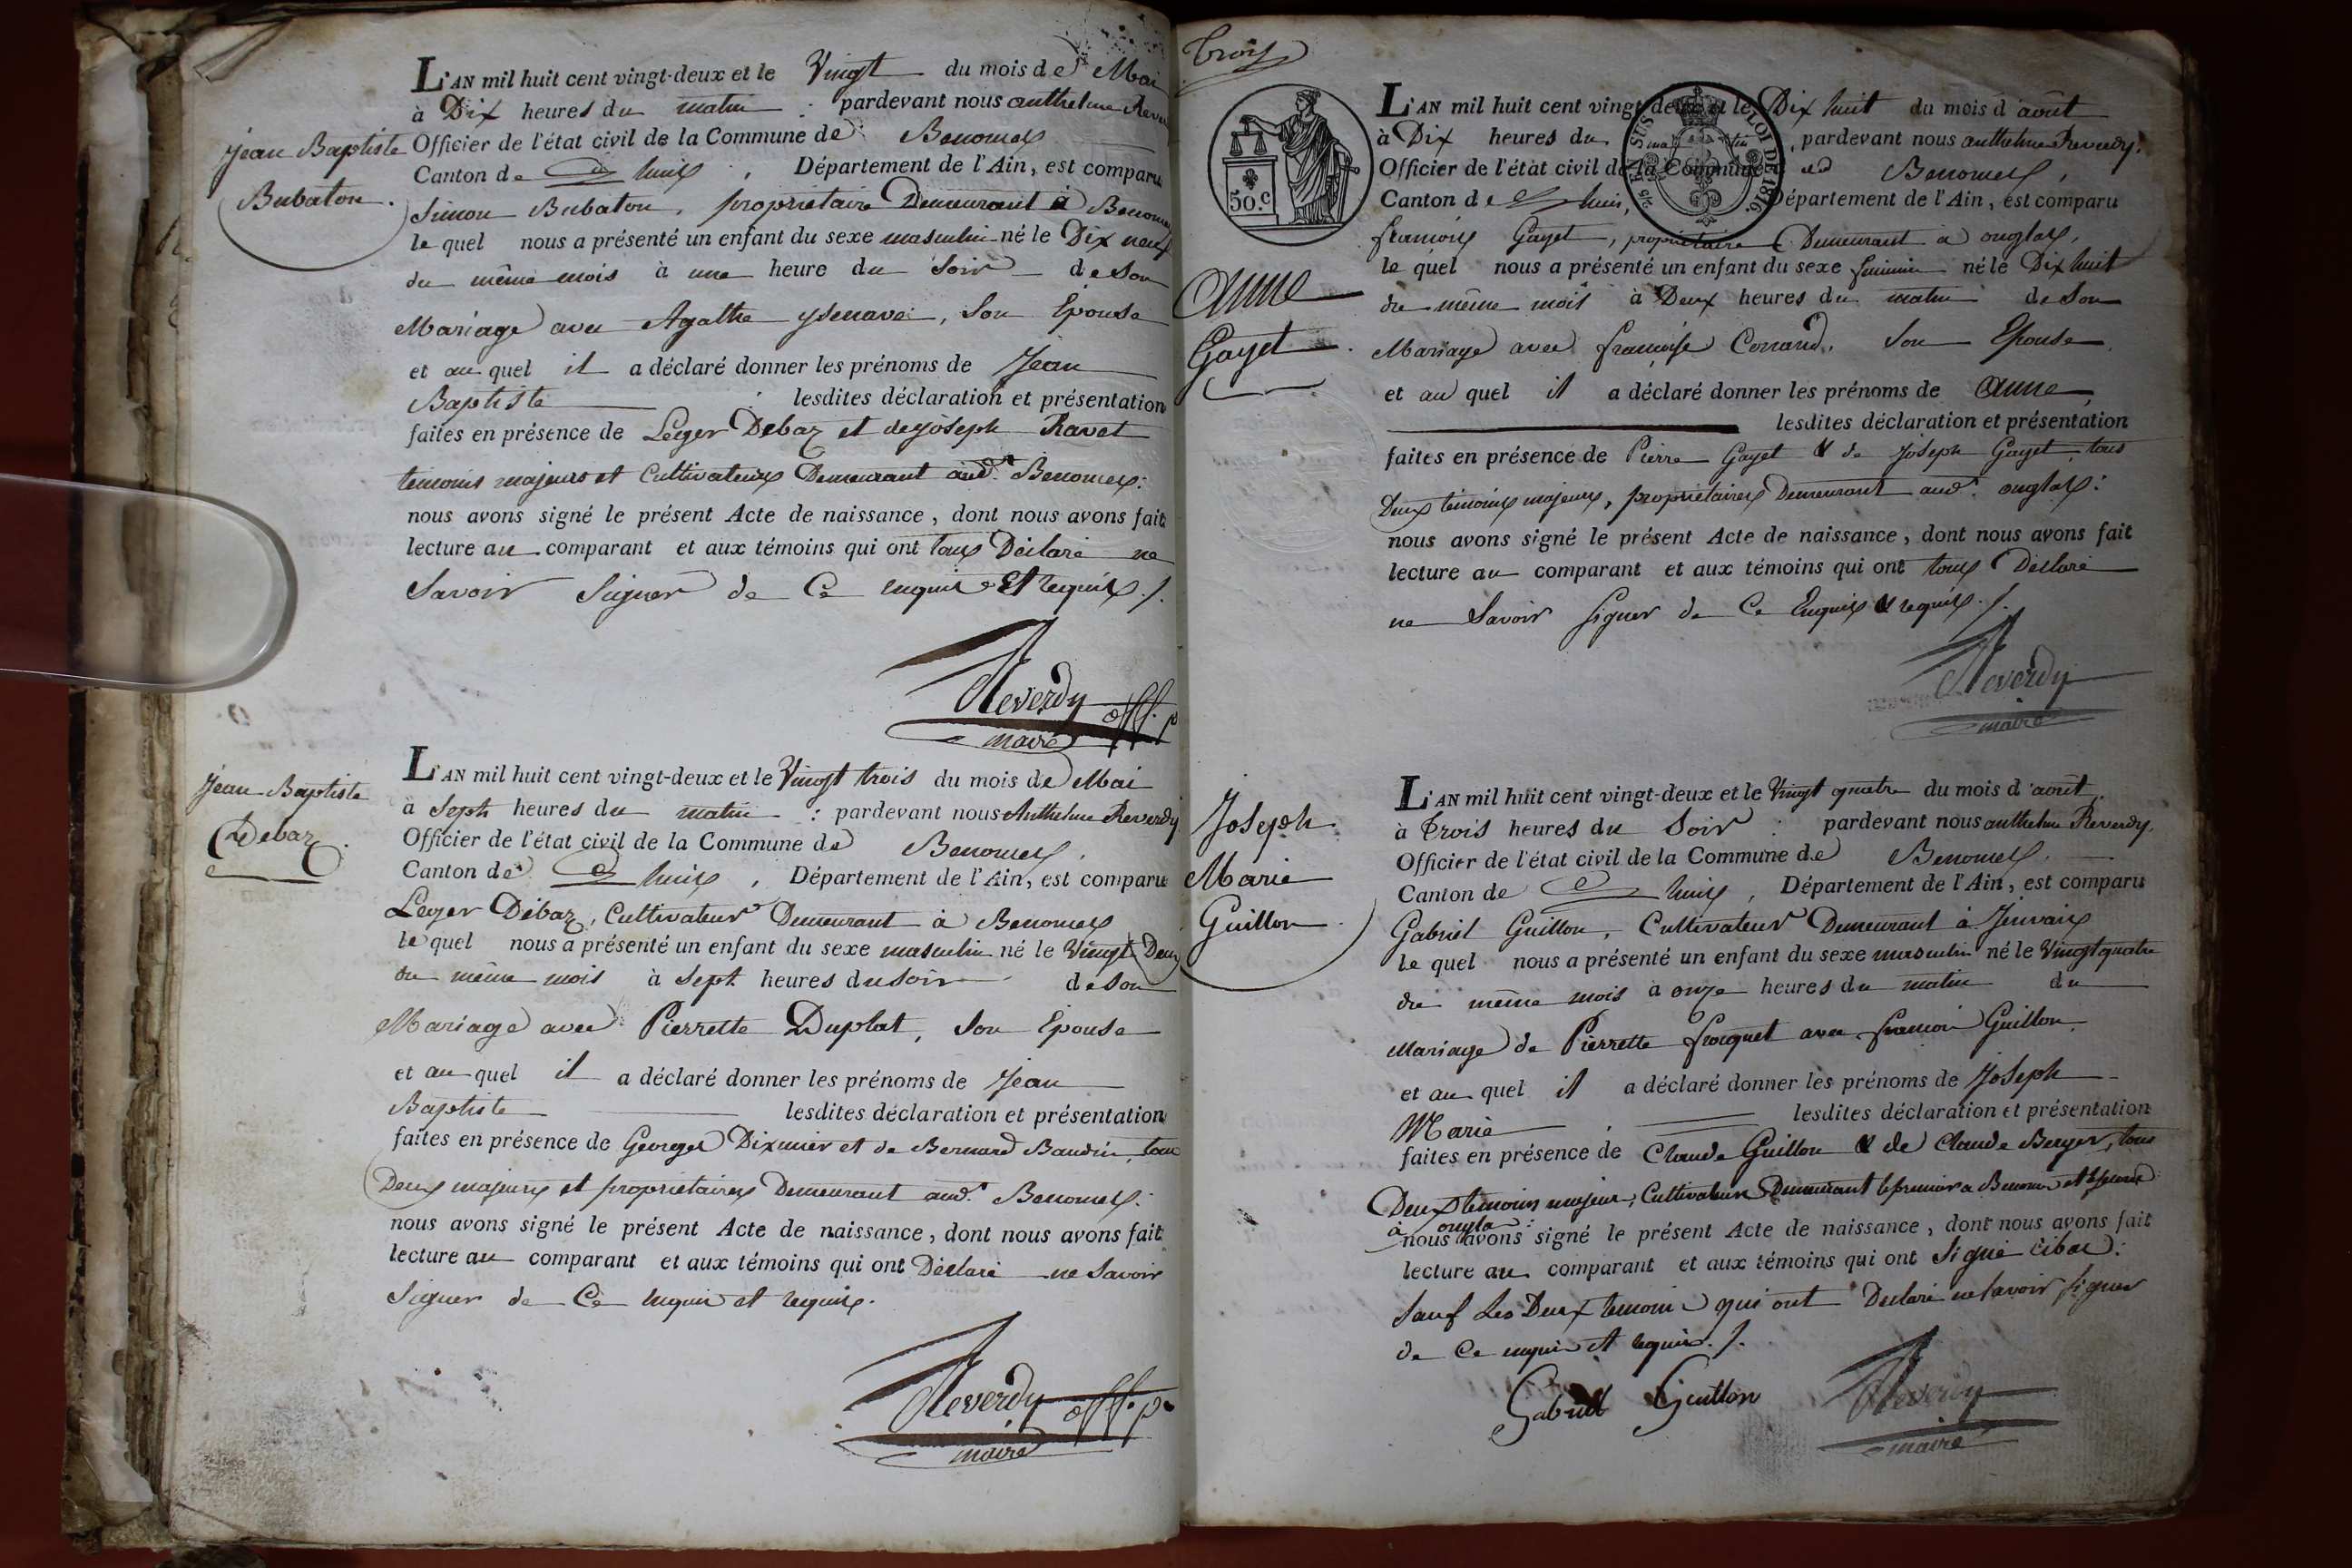 L'AN mil huit cent vingt-deux et le Vingt du mois de Mai
à Dix heures du matin : pardevant nous anthelme Rever
Officier de l'état civil de la Commune de Benonces
Canton de Lhuis, Département de l'Ain, est comparu
Jean Baptiste
Bubaton.
Simon Bubaton, propriétaire Demeurant à Benonces
le quel nous a présenté un enfant du sexe masculin né le Dix neuf
du même mois à une heure du Soir de son
Mariage avec Agathe , Son Epouse
et au quel il a déclaré donner les prénoms de Jean
Baptiste lesdites déclaration et présentation
faites en présence de Leger Debaz et de joseph Ravet
temoins majeurs et Cultivateurs Demeurant aud.t Benonces:
nous avons signé le présent Acte de naissance, dont nous avons fait
lecture au comparant et aux témoins qui ont tous Déclaré ne
Savoir Signer de Ce enquis Et requis ./.
Reverdy off. p
maire
L'AN mil huit cent vingt-deux et le Vingt trois du mois de Mai
à Sept heures du matin : pardevant nous Anthelme Reverdy
Officier de l'état civil de la Commune de Benonces,
Canton de Lhuis, Département de l'Ain, est comparu
Jean Baptiste
Debaz.
Leger Débaz, Cultivateur Demeurant à Benonces
le quel nous a présenté un enfant du sexe masculin né le Vingt Deux
du même mois à Sept heures du soir de son
Mariage avec Pierrette Duplat, Son Epouse
et au quel il a déclaré donner les prénoms de Jean
Baptiste lesdites déclaration et présentation
faites en présence de Georges Dixmier et de Bernard Baudin, tous
Deux majeurs et propriétaires Demeurant aud.t Benonces:
nous avons signé le présent Acte de naissance, dont nous avons fait
lecture au comparant et aux témoins qui ont Déclaré ne Savoir
Signer de Ce enquis et requis.
Reverdy off. p.
maire
Trois
50.c
5/10 EN SUS LOI DE 1816.
L'AN mil huit cent vingt-deux et le Dix huit du mois d'août
à Dix heures du matin, pardevant nous anthelme Reverdy.
Officier de l'état civil de la Commune de Benonces,
Canton de Lhuis, Département de l'Ain, est comparu
Anne
Gayet.
françois Gayet, propriétaire Demeurant à onglas,
le quel nous a présenté un enfant du sexe feminin né le Dix huit
du même mois à Deux heures du matin de Son
Mariage avec françoise Corrand, Son Epouse
et au quel il a déclaré donner les prénoms de Anne,
lesdites déclaration et présentation
faites en présence de Pierre Gayet & de Joseph Gayet, tous
Deux témoins majeurs, propriétaires Demeurant aud.t onglas:
nous avons signé le présent Acte de naissance, dont nous avons fait
lecture au comparant et aux témoins qui ont tous Déclaré
ne Savoir Signer de Ce Enquis & requis ./.
Reverdy
maire
L'AN mil huit cent vingt-deux et le Vingt quatre du mois d'août,
à Trois heures du Soir : pardevant nous anthelme Reverdy,
Officier de l'état civil de la Commune de Benonces,
Canton de Lhuis, Département de l'Ain, est comparu
Joseph
Marie
Guillon.
Gabriel Guillon, Cultivateur Demeurant à
le quel nous a présenté un enfant du sexe masculin né le Vingt quatre
du même mois à onze heures du matin du
Mariage de Pierrette avec françois Guillon,
et au quel il a déclaré donner les prénoms de Joseph
Marie, lesdites déclaration et présentation
faites en présence de Claude Guillon & de Claude Berger, tous
Deux temoins majeurs, Cultivateurs Demeurant le premier a Benonces et le second
à onglas:
nous avons signé le présent Acte de naissance, dont nous avons fait
lecture au comparant et aux témoins qui ont Signé :
Sauf Les Deux temoins qui ont Declaré ne savoir signer
de Ce enquis et requis ./.
Gabriel Guillon
Reverdy
maire